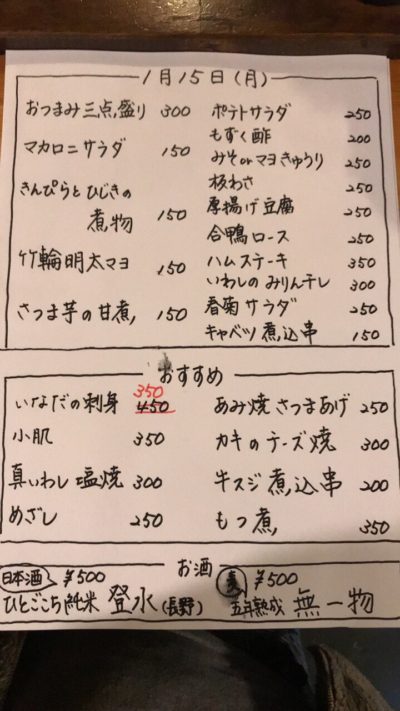 1月15日(月)
おつまみ三点盛り 300
マカロニサラダ 150
きんぴらとひじきの
煮物 150
竹輪明太マヨ 150
さつま芋の甘煮 150
ポテトサラダ 250
もずく酢 200
みそorマヨきゅうり 250
板わさ 250
厚揚げ豆腐 250
合鴨ロース 250
ハムステーキ 350
いわしのみりん干し 300
春菊サラダ 250
キャベツ煮込串 150
おすすめ
350
いなだの刺身 450
小肌 350
真いわし塩焼 300
めざし 250
あみ焼さつまあげ 250
カキのチーズ焼 300
牛スジ煮込串 200
もつ煮 350
お酒
日本酒 ¥500
ひとごこち純米 登水(長野)
麦 ¥500
五年熟成 無一物